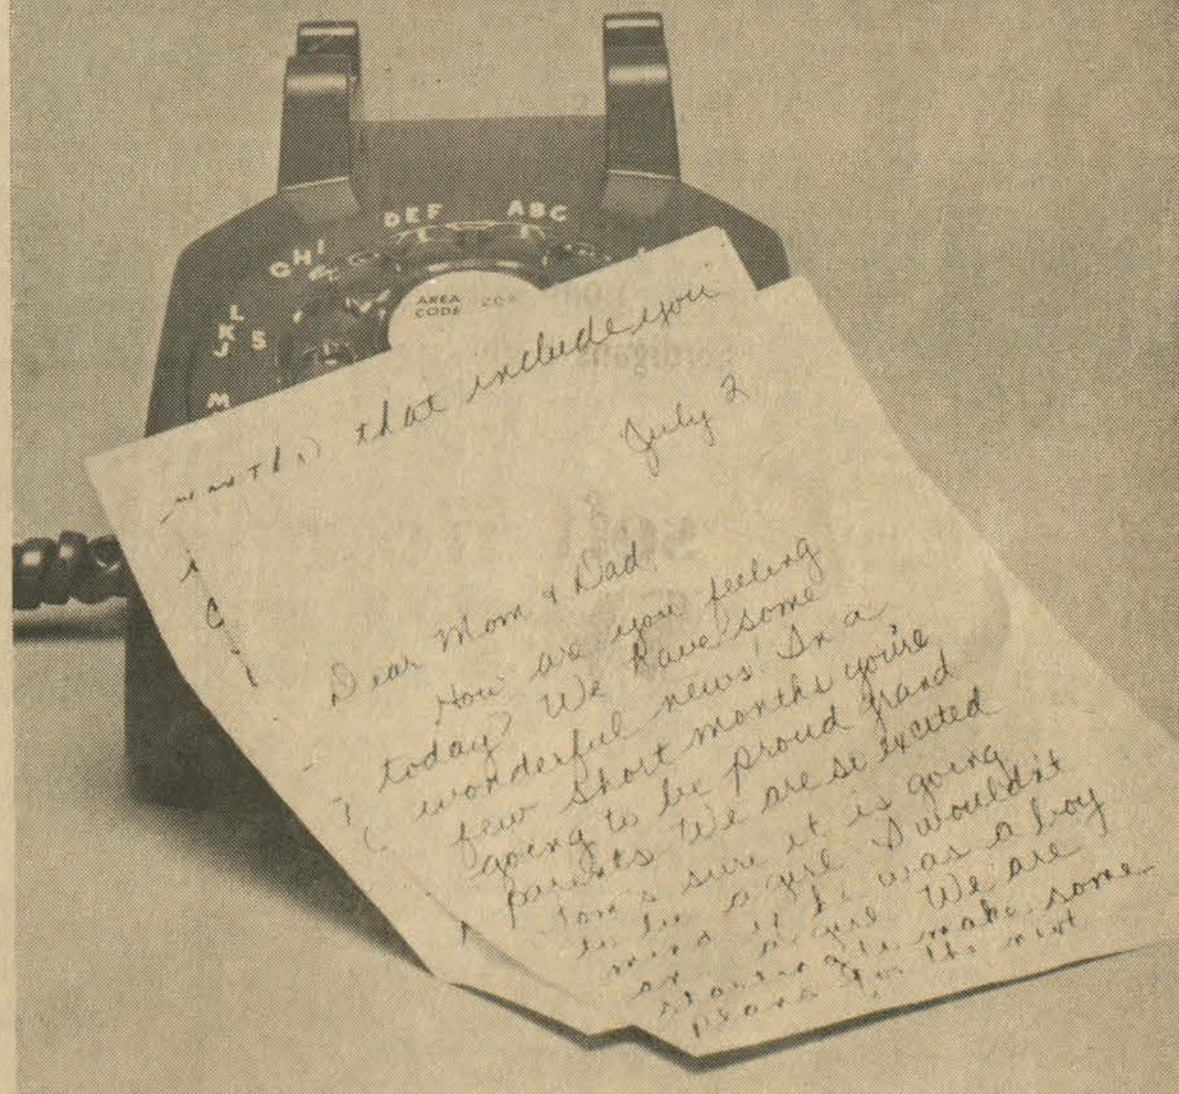 DEF ABC
GHI
L
K 5
J
M
AREA
CODE 20
that include you
July 2
Dear Mom & Dad,
How are you feeling
today? We have some
wonderful news! In a
few short months you're
going to be proud grand
parents. We are so excited
Tom's sure it is going
to be a girl. I wouldn't
mind if he was a boy
or a girl. We are
starting to make some
plans for the next